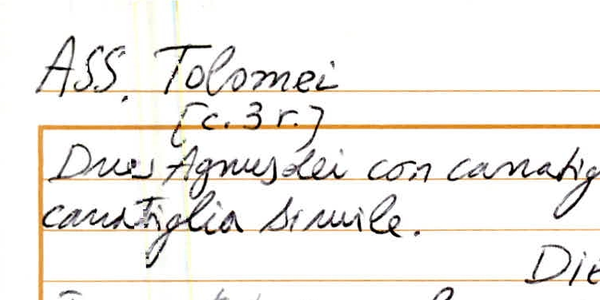 ASS. Tolomei
[c. 3 r.]
Dues Agnusdei con canatig
canatiglia simile.
Die